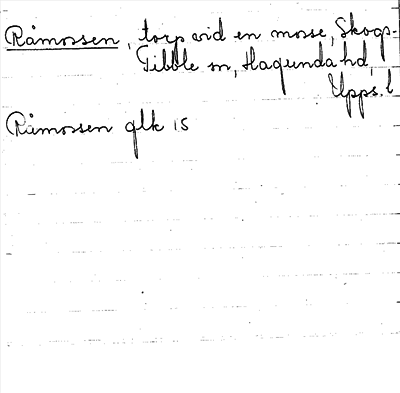 Råmossen, torp vid en mosse, Skogs-
Tibble sn, Hagunda hd,
Upps. l
Råmossen glk 15